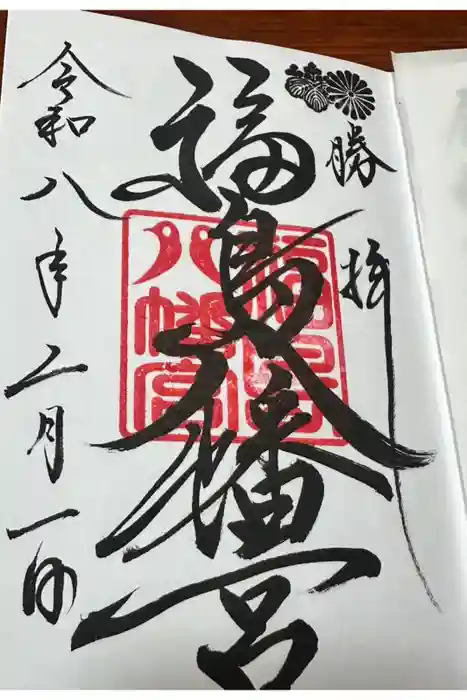 勝拝
福島八幡宮
福島
八幡宮
令和八年二月一日